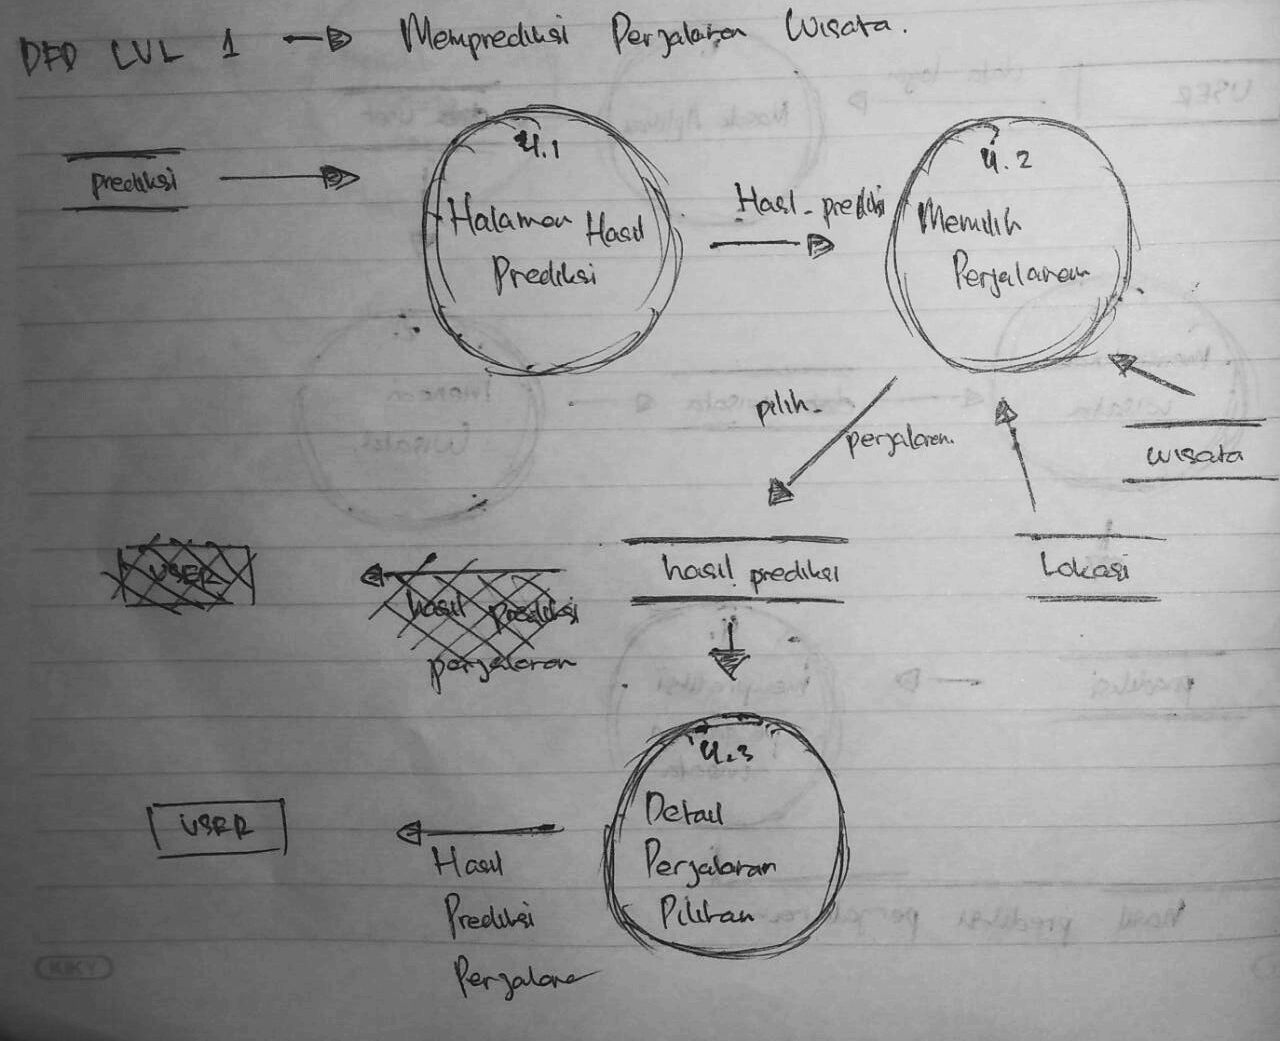 DFD LVL 1 → Memprediksi Perjalanan Wisata.
prediksi
4.1
Halaman Hasil
Prediksi
Hasil - prediksi
4.2
Memilih
Perjalanan
pilih -
perjalanan.
wisata
USER
hasil prediksi
perjalanan
hasil prediksi
Lokasi
4.3
Detail
Perjalanan
Pilihan
USER
Hasil
Prediksi
Perjalanan
KIKY